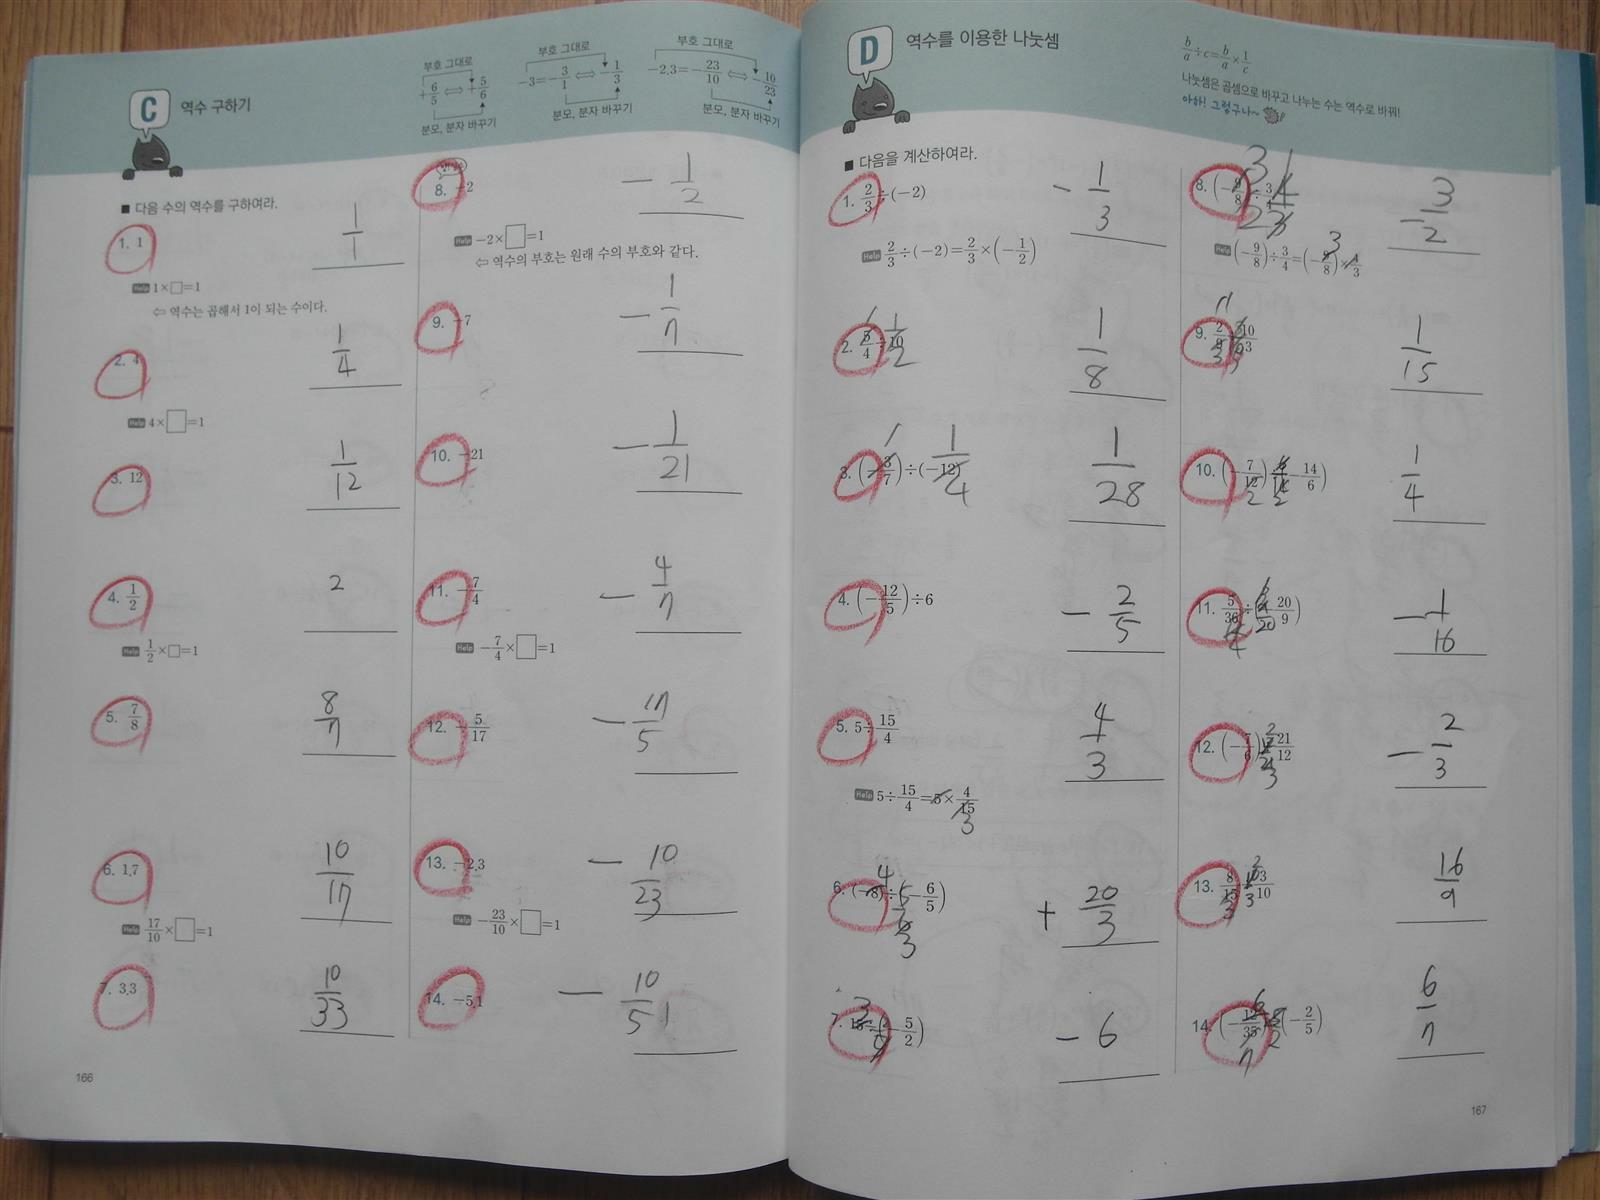 C 역수 구하기
부호 그대로
+6/5 ⇔ +5/6
분모, 분자 바꾸기
부호 그대로
-3=-3/1 ⇔ -1/3
분모, 분자 바꾸기
부호 그대로
-2.3=-23/10 ⇔ -10/23
분모, 분자 바꾸기
■ 다음 수의 역수를 구하여라.
1. 1
1/1
Help 1×□=1
⇦ 역수는 곱해서 1이 되는 수이다.
2. 4
1/4
Help 4×□=1
3. 12
1/12
4. 1/2
2
Help 1/2×□=1
5. 7/8
8/7
6. 1.7
10/17
Help 17/10×□=1
7. 3.3
10/33
8. -2
-1/2
Help -2×□=1
⇦ 역수의 부호는 원래 수의 부호와 같다.
9. -7
-1/7
10. -21
-1/21
11. -7/4
-4/7
Help -7/4×□=1
12. -5/17
-17/5
13. -2.3
-10/23
Help -23/10×□=1
14. -5.1
-10/51
166
D 역수를 이용한 나눗셈
b/a÷c=b/a×1/c
나눗셈은 곱셈으로 바꾸고 나누는 수는 역수로 바꿔!
아하! 그렇구나~
■ 다음을 계산하여라.
1. 2/3÷(-2)
-1/3
Help 2/3÷(-2)=2/3×(-1/2)
2. 5/4÷10
1/8
3. (-3/7)÷(-12)
1/28
4. (-12/5)÷6
-2/5
5. 5÷15/4
4/3
Help 5÷15/4=5×4/15
3
6. (-8)÷(-6/5)
+20/3
7. 15÷(-5/2)
-6
8. (-9/8)÷3/4
-3/2
Help (-9/8)÷3/4=(-9/8)×4/3
9. 2/9÷10/3
1/15
10. (-7/12)÷(-14/6)
1/4
11. 5/36÷(-20/9)
-1/16
12. (-7/6)÷21/12
-2/3
13. 8/15÷3/10
16/9
14. (-12/35)÷(-2/5)
6/7
167